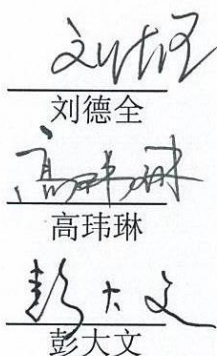 刘德全
刘德全
高玮琳
高玮琳
彭大文
彭大文